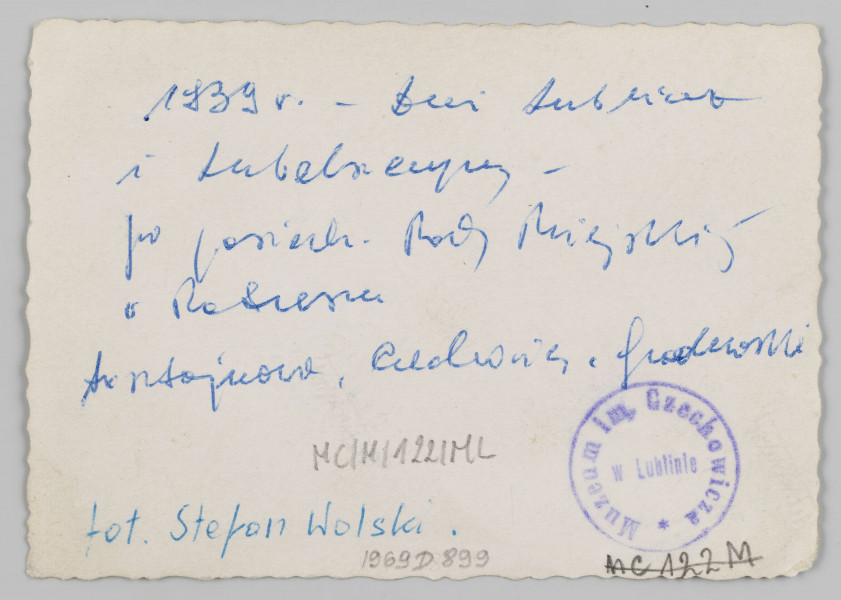 1939 r. - Dni Lublina
i Lubelszczyzny -
po posiedz. Rady Miejskiej
w Ratuszu
Arsztajnowa, Czechowicz,
MC/M/122/ML
Muzeum im. Czechowicza
w Lublinie *
fot. Stefan Wolski.
1969 D 899
MC 122 M